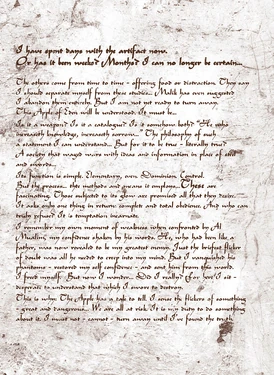 I have spent days with the artifact now.
Or has it been weeks? Months? I can no longer be certain...
The others come from time to time - offering food or distraction. They say
I should separate myself from these studies... Malik has even suggested
I abandon them entirely. But I am not yet ready to turn away.
This Apple of Eden will be understood. It must be...
Is it a weapon? Is it a catalogue? Is it somehow both? "He who
increaseth knowledge, increaseth sorrow..." The philosophy of such
a statement I can understand... But for it to be true - literally true?
A society that waged wars with ideas and information in place of steel
and swords...
Its function is simple. Elementary, even. Dominion. Control.
But the process... the methods and means it employs... These are
fascinating. Those subjected to its glow are promised all that they desire.
It asks only one thing in return: complete and total obedience. And who can
truly refuse? It is temptation incarnate.
I remember my own moment of weakness when confronted by Al
Mualim, my confidence shaken by his words. He, who had been like a
father, was now revealed to be my greatest enemy. Just the briefest flicker
of doubt was all he needed to creep into my mind. But I vanquished his
phantoms - restored my self confidence - and sent him from this world.
I freed myself. But now I wonder... Did I really? For here I sit -
desperate to understand that which I swore to destroy.
This is why: The Apple has a tale to tell. I sense the flickers of something
- great and dangerous... We are all at risk. It is my duty to do something
about it. I must not - cannot - turn away until I've found the truth.